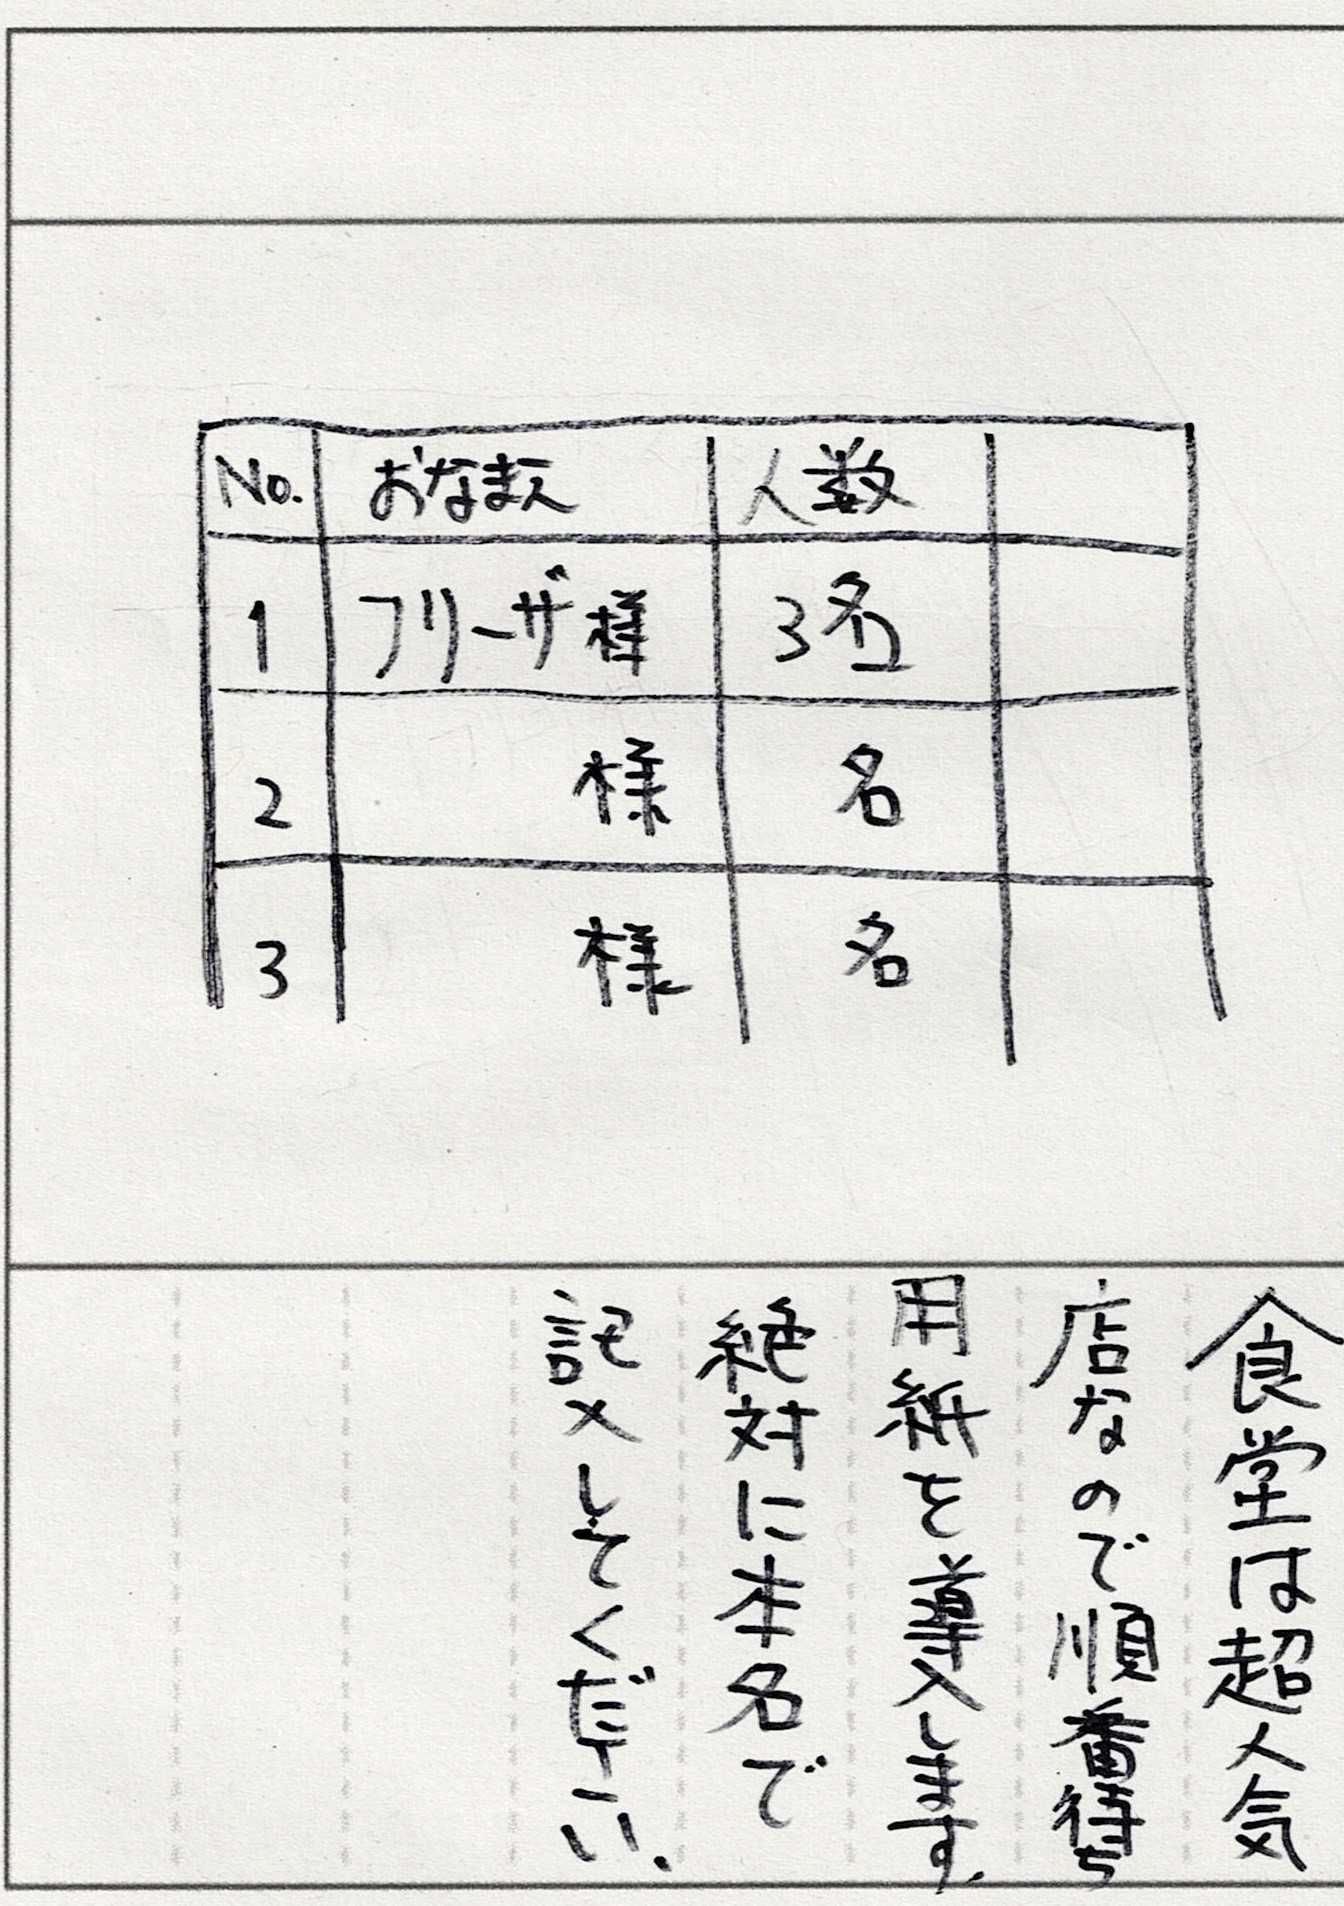 No. おなまえ 人数
1 フリーザ様 3名
2 様 名
3 様 名
食堂は超人気
店なので順番待ち
用紙を導入します。
絶対に本名で
記入してください。